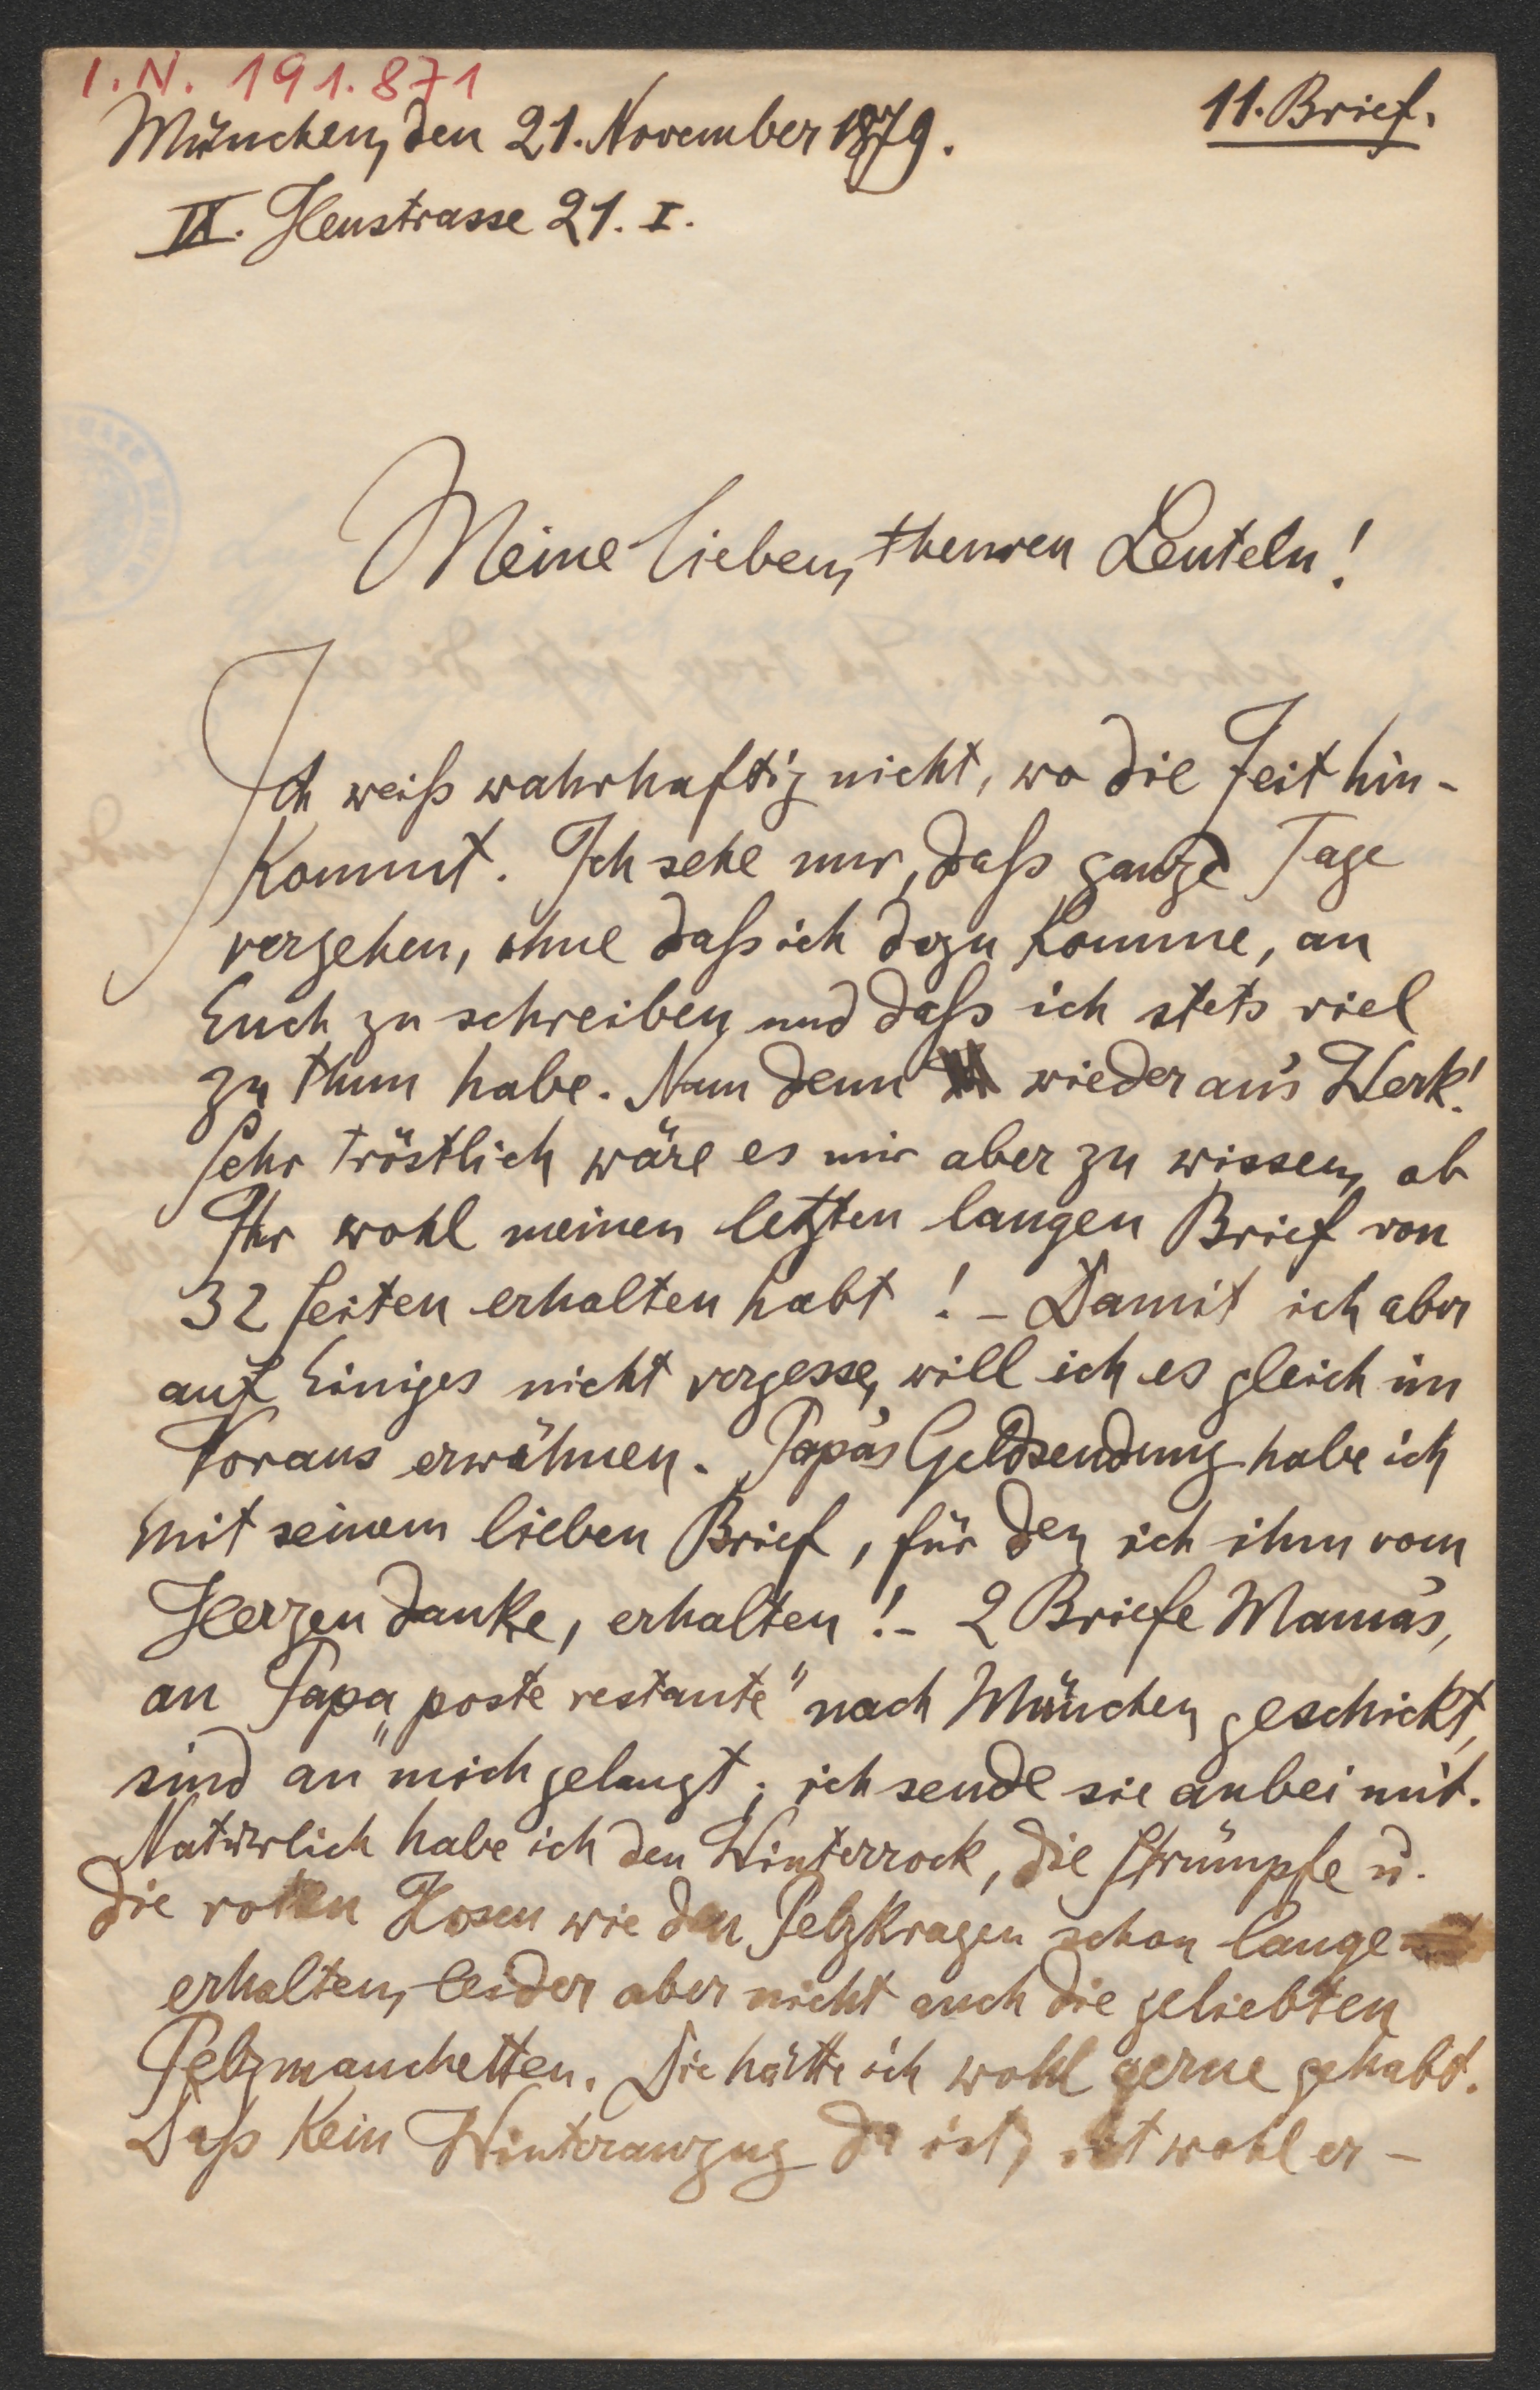 I.N. 191.871
11. Brief.
München, den 21. November 1879.
IX. Heustrasse 21. I.
Meine lieben, theuren Leuteln!
Ich weiß wahrhaftig nicht, wo die Zeit hin-
kommt. Ich sehe nur, daß ganze Tage
vergehen, ohne daß ich dazu komme, an
Euch zu schreiben und daß ich stets viel
zu thun habe. Nun denn wieder an's Werk!
Sehr tröstlich wäre es mir aber zu wissen, ob
Ihr wohl meinen letzten langen Brief von
32 Seiten erhalten habt! – Damit ich aber
auf Einiges nicht vergesse, will ich es gleich im
Voraus erwähnen. Papa's Geldsendung habe ich
mit seinem lieben Brief, für den ich ihm vom
Herzen danke, erhalten! – 2 Briefe Mama's,
an Papa „poste restante" nach München geschickt,
sind an mich gelangt; ich sende sie anbei mit.
Natürlich habe ich den Winterrock, die Strümpfe u.
die roten Hosen wie den Pelzkragen schon lange
erhalten, leider aber nicht auch die geliebten
Pelzmanchetten. Die hätte ich wohl gerne gehabt.
Daß kein Winteranzug da ist, ist wohl er-